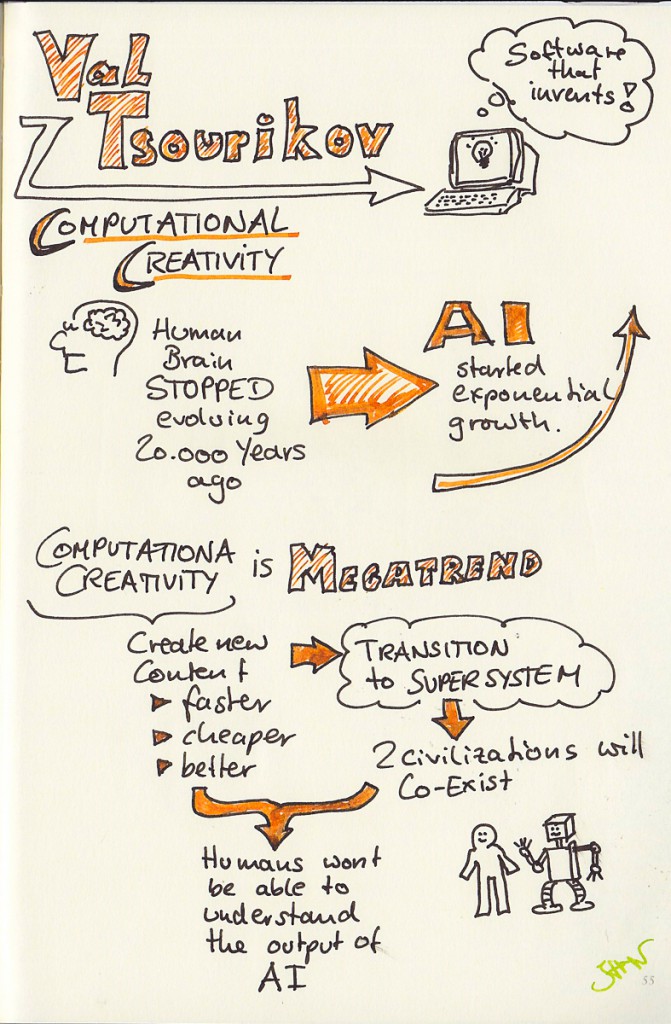 Val
Tsourikov
Software
that
invents!
COMPUTATIONAL
CREATIVITY
Human
Brain
STOPPED
evolving
20.000 Years
ago
AI
started
exponential
growth.
COMPUTATIONA
CREATIVITY
is MEGATREND
Create new
Content
faster
cheaper
better
TRANSITION
to SUPERSYSTEM
2 civilizations will
Co-Exist
Humans wont
be able to
understand
the output of
AI
55